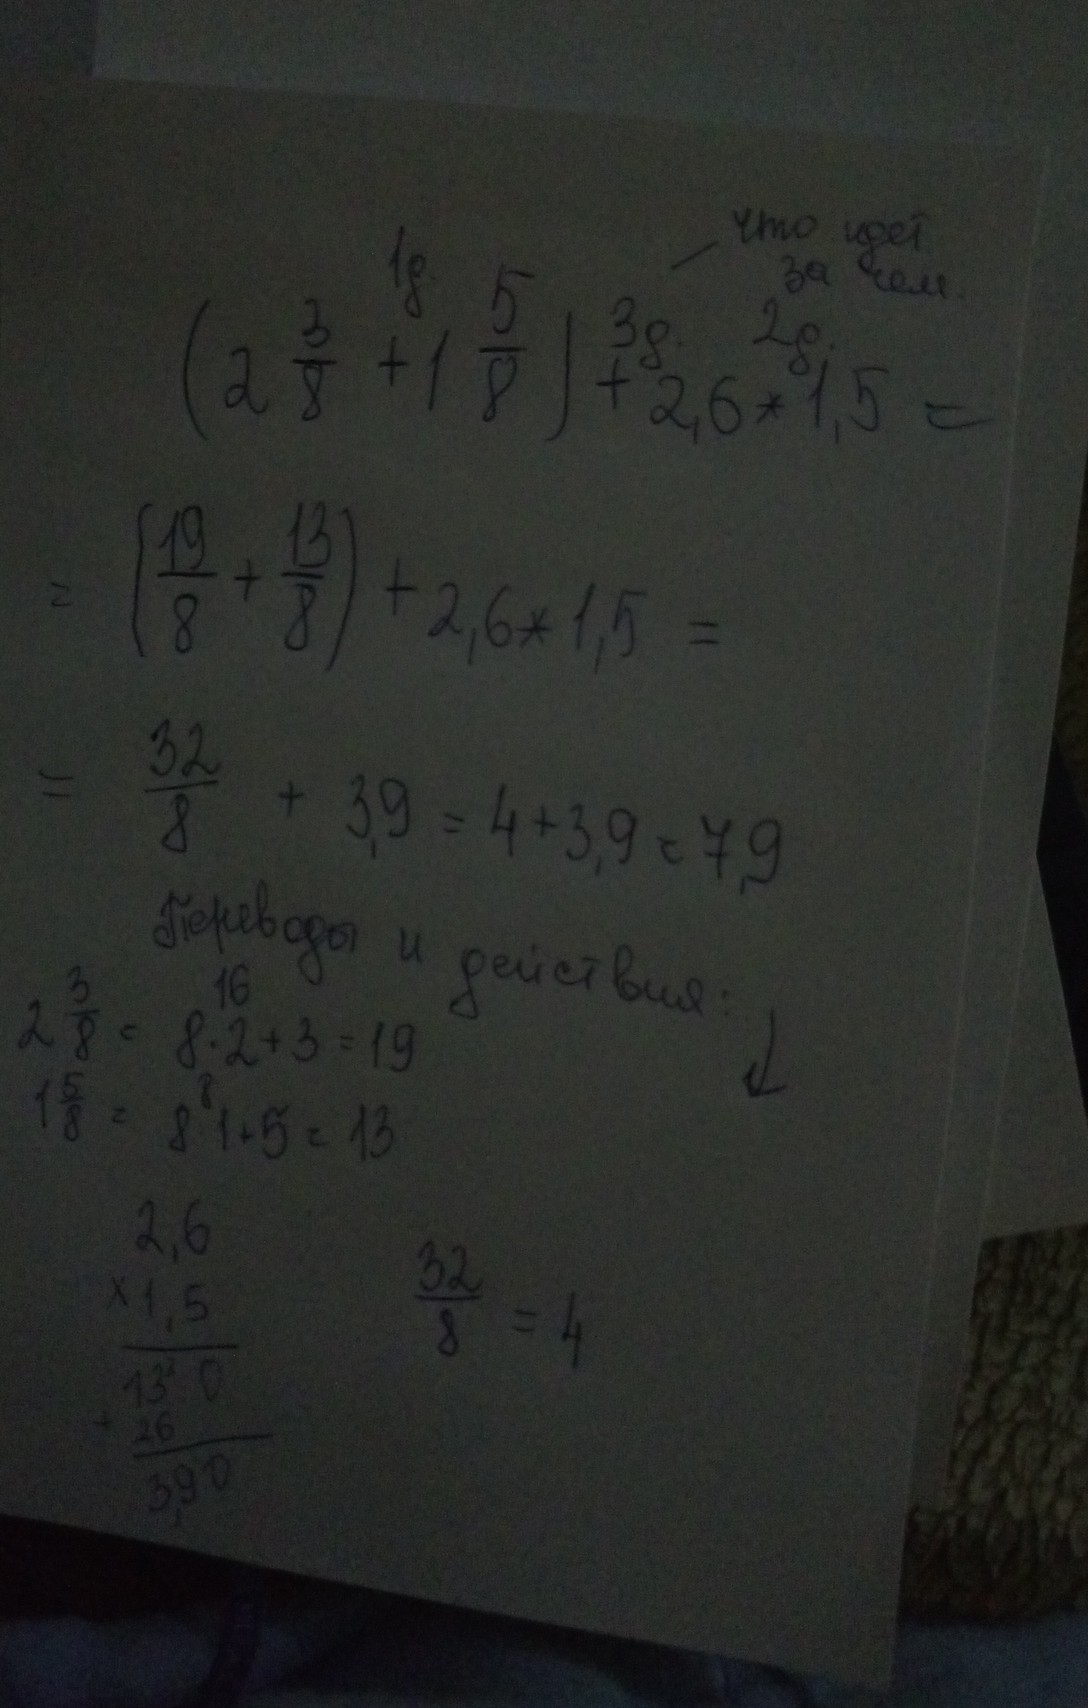 что идёт
за чем.
1д. 3д. 2д.
(2 3/8 + 1 5/8) + 2,6 * 1,5 =
= (19/8 + 13/8) + 2,6 * 1,5 =
= 32/8 + 3,9 = 4 + 3,9 = 7,9
Переводы и действия: ↓
16
2 3/8 = 8 · 2 + 3 = 19
8
1 5/8 = 8 · 1 + 5 = 13
2,6
× 1,5
13³0
+ 26
3,90
32/8 = 4